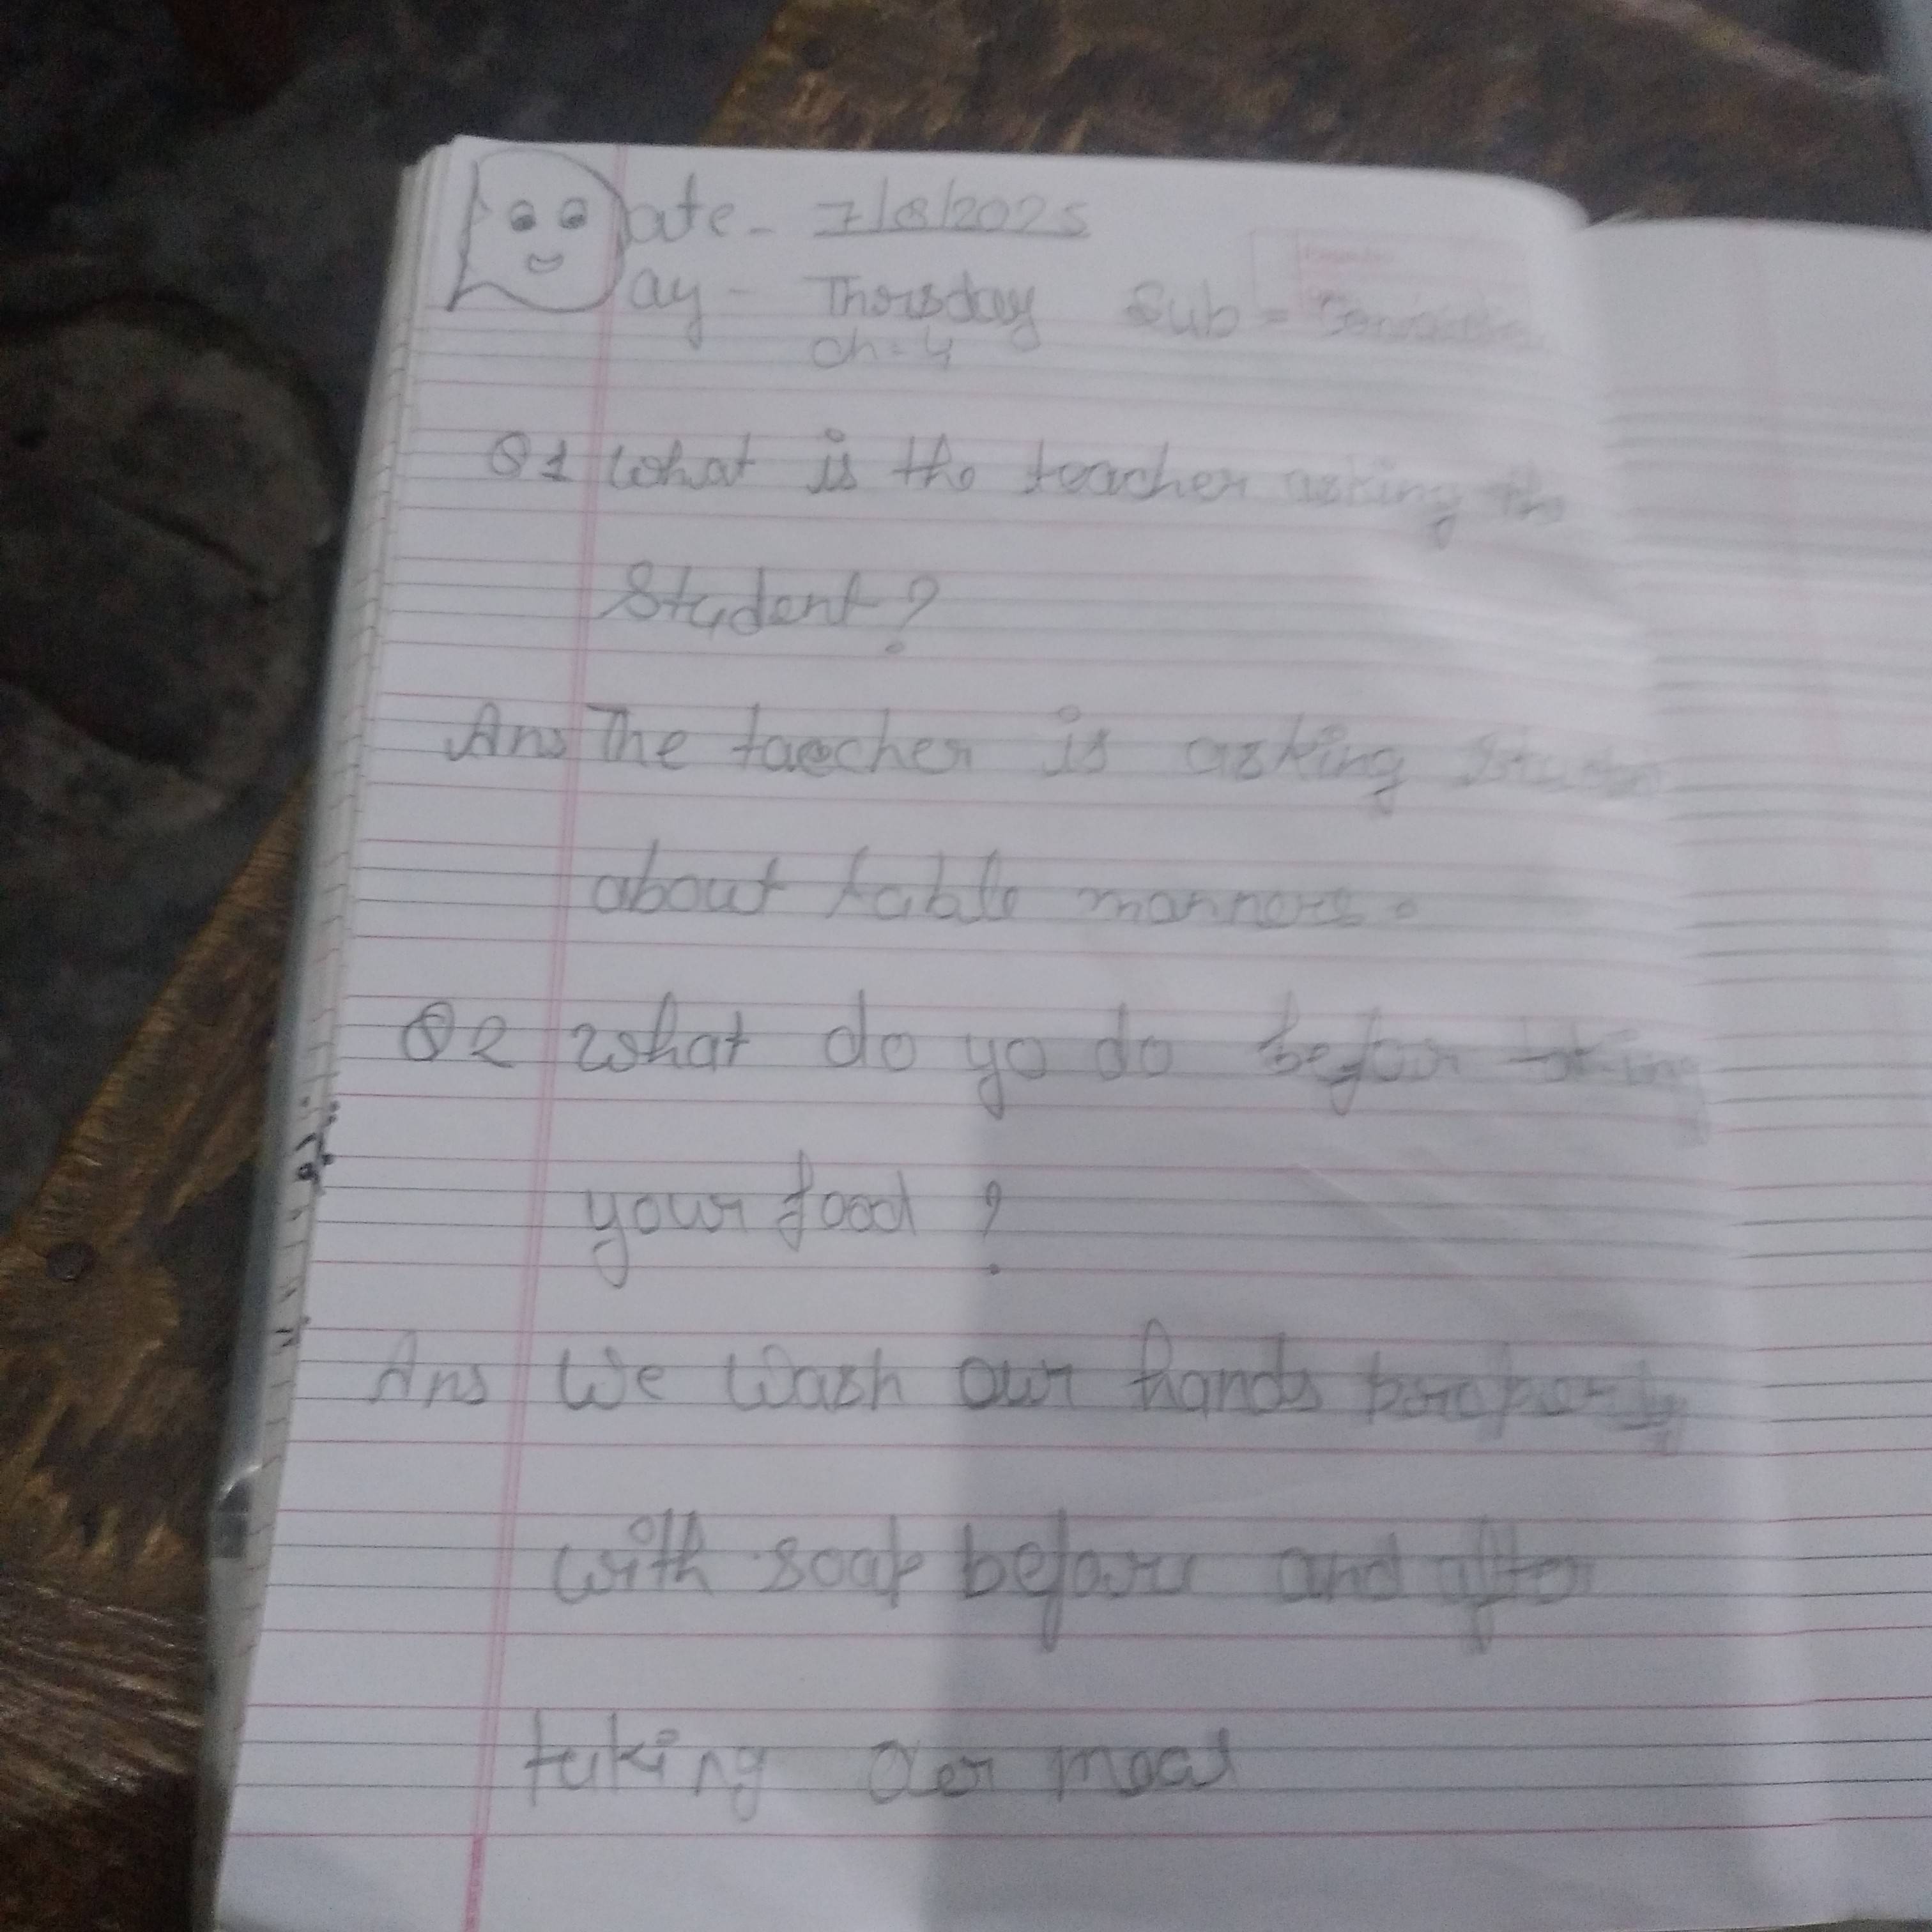 Date - 7/8/2025
Day - Thorsday Sub =
ch = 4
Q1 What is the teacher asking the
Student?
Ans The taecher is asking
about table manners.
Q2 What do yo do befor
your food ?
Ans We Wash our hands
with soap before and after
taking Oer meal